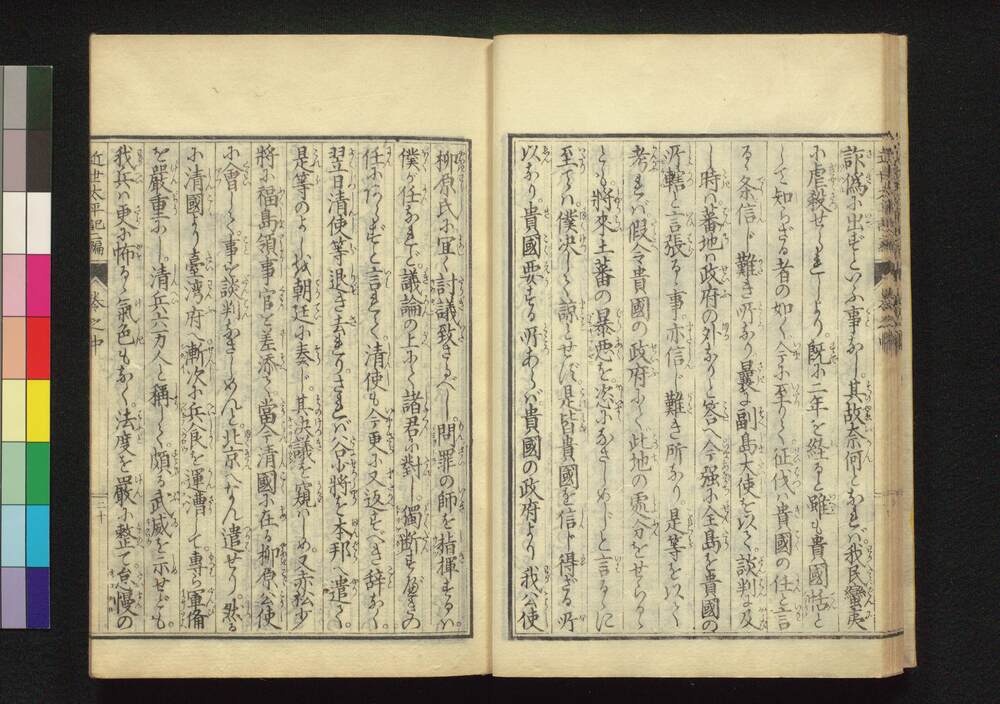 詐偽に出るといふ事なし其故奈何となれバ我民蠻夷
に虐殺せられしより既に二年を経ると雖も貴國恬と
して知らざる者の如く今に至りて征伐ハ貴國の任と言
る条信じ難き所なり曩に副島大使を以て談判に及
し時ハ蕃地ハ政府の外なりと答へ今強に全島を貴國の
所轄と言張る事亦信じ難き所なり是等を以て
考れバ假令貴國の政府にて此地の處分をせらるゝ
とも將來土蕃の暴悪を恣になさしめじと言るゝに
至てハ僕決して諒とせず是皆貴國を信じ得ざる所
以なり貴國要する所あらバ貴國の政府より我公使
柳原氏に宜く討議致さるべし問罪の師を指揮するハ
僕が任なれど議論の上にて諸君に對し獨断するハ
任にあらずと言れて清使も今更に又返すべき辞なく
翌日清使等退き去れりされバ谷少將を本邦へ遣して
是等のよしを朝廷に奏し其决議を窺ハしめ又赤松少
將に福島領事官を差添て當今清國に在る柳原公使
に會して事を談判なさしめんと北京へなん遣せり然る
に清國より臺湾府へ漸次に兵食を運漕して專ら軍備
を嚴重にし清兵六万人と稱して頗る武威を示せども
我兵ハ更に怖るゝ氣色もなく法度を嚴に整て怠慢の
近世太平記二編
巻之中
二十